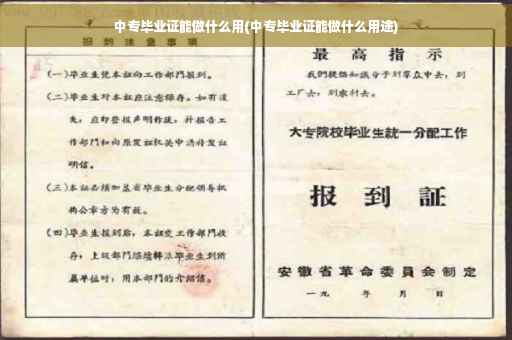 中专毕业证能做什么用(中专毕业证能做什么用途)
报到注意事项
(一)毕业生凭本证向工作部门报到。
(二)毕业生对本证应注意保存。如有遗
失，应即登报声明作废，并报告工
作部门和向原发证机关申请补发证
明信。
(三)本证必须加盖省毕业生分配领导机
构公章方为有效。
(四)毕业生报到后，本证交工作部门收
存；上级部门
毕业生到所
属单位时，用本部门的介绍信。
最高指示
我们提倡知识分子到群众中去，到
工厂去，到农村去。
大专院校毕业生統一分配工作
报到証
安徽省革命委員会制定
一九 年 月 日